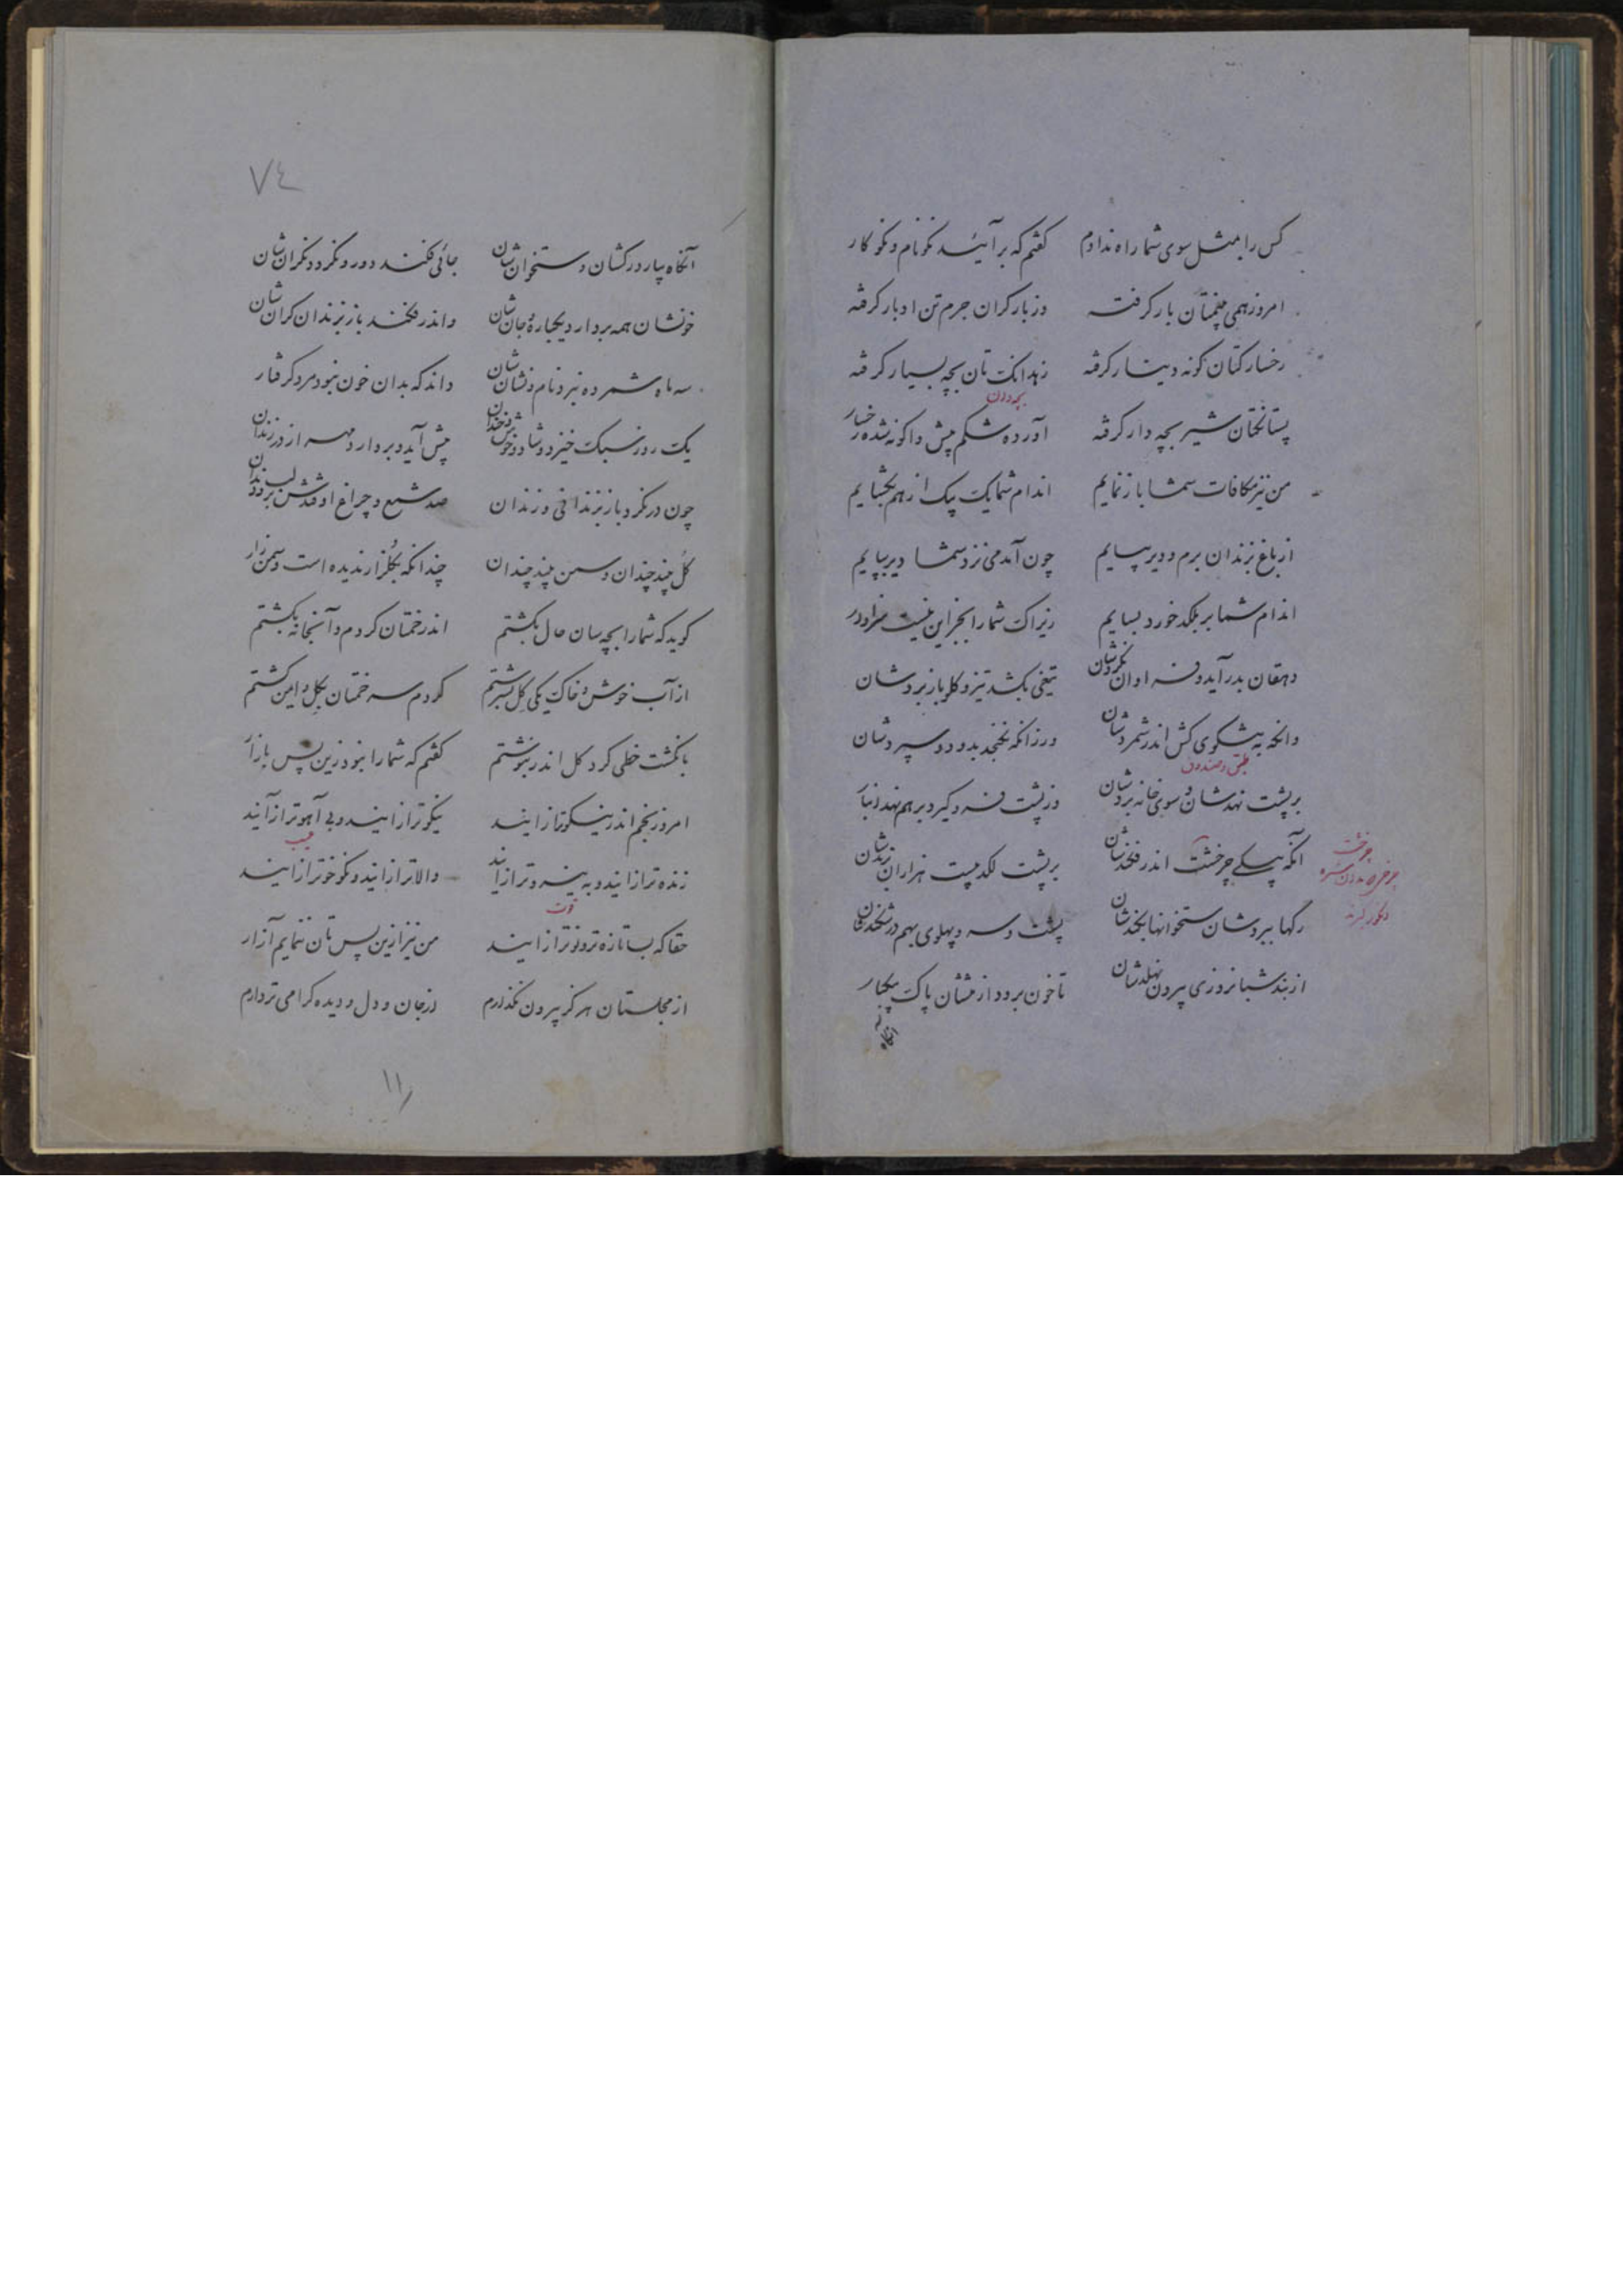 کس را بمثل سوی شما راه ندادم گفتم که برآئید نکونام و نکوکار
امروز همی بینمتان بار گرفته وز بار گران جرم تن ادبار گرفته
رخسارکتان گونه دینار گرفته زهدانکتان بچه بسیار گرفته
بچه دان
پستانکتان شیر بچه دار گرفته آورده شکم پیش و اگونه شده رخسار
من نیز مکافات شما باز نمایم اندام شما یک بیک از هم بگشایم
از باغ بزندان برم و دیر بیایم چون آمدمی نزد شما دیر بپایم
اندام شما بر بلکد خورد بسایم زیراک شما را بجز این نیست سزاوار
دهقان بدر آید و فراوان نگردشان تیغی بکشد تیز و گلو باز بردشان
وانگه به بشکوی کش اندر شمردشان ورزانکه نگنجد بدو در سپردشان
طبق و صندوق
بر پشت نهدشان و سوی خانه بردشان وز پشت فرو گیرد و بر هم نهد انبار
آنگه بیکی چرخشت اندر فکندشان بر پشت لگد بیست هزاران بزندشان
چرخشت
رگها ببردشان ستخوانها بکندشان پشت و سر و پهلوی بهم در شکندشان
از بند شبانروزی بیرون نهلدشان تا خون برود از تنشان پاک بیکبار
آنگاه
٧٤
آنگاه بیارد رگشان و ستخوان شان جائی فکند دور و نگردد نگران شان
خونشان همه بردارد یکباره و جان شان واندر فکند باز بزندان گران شان
سه ماه شمرده نبرد نام و نشان شان داند که بدان خون نبود مرد گرفتار
یک روز سبک خیزد و شاد و خوش و خندان پیش آید و بردارد مهر از در زندان
چون در نگرد باز بزندانی و زندان صد شمع و چراغ اوفتدش بر لب و دندان
گل چند چندان و سمن چند چندان چندانکه بگلزار ندیده است و سمن زار
گوید که شما را بچه سان حال بکشتم اندر خمتان کردم و آنجا نه بکشتم
از آب خوش و خاک یکی گل بسرشتم کردم سر خمتان بگل و ایمن گشتم
بانگشت خطی گرد گل اندر بنوشتم گفتم که شما را نبود زین پس بازار
امروز بخم اندر نیکوتر ازانید نیکوتر ازانید و بی آهوتر ازآنید
عیب
زنده تر ازانید و به نیروتر ازانید والاتر ازانید و نکوخوتر ازانید
قوت
حقا که بسی تازه تر و نوتر ازانید من نیز ازین پس تان ننمایم آزار
از مجلستان هرگز بیرون نگذارم از جان و دل و دیده گرامی تر دارم
۱۱